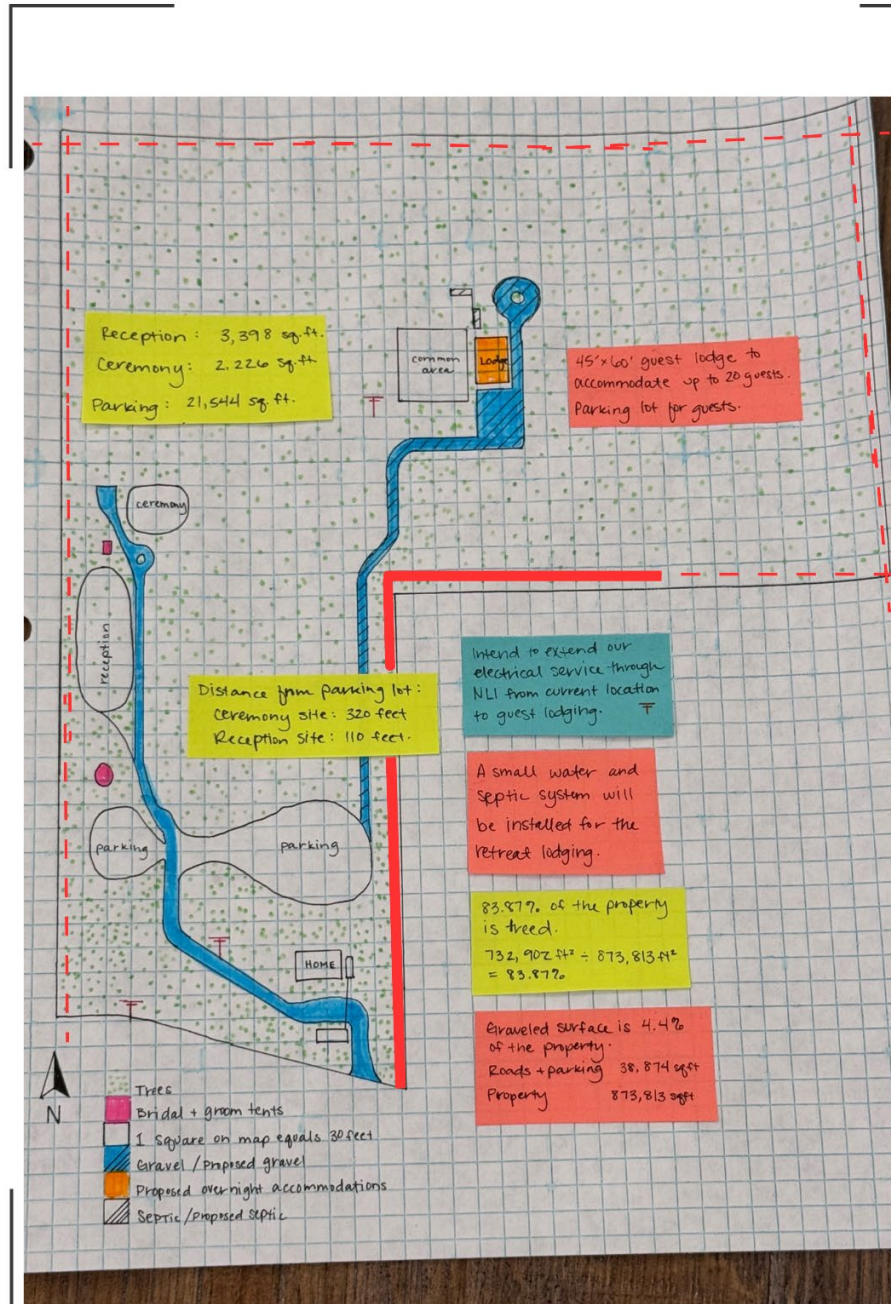 Reception: 3,398 sq.ft.
Ceremony: 2,226 sq.ft.
Parking: 21,544 sq.ft.
common
area
Lodge
45'x60' guest lodge to
accommodate up to 20 guests.
Parking lot for guests.
ceremony
reception
Distance from parking lot:
Ceremony site: 320 feet
Reception site: 110 feet.
Intend to extend our
electrical service through
NLI from current location
to guest lodging.
A small water and
septic system will
be installed for the
retreat lodging.
parking
parking
83.87% of the property
is treed.
732,902 ft² ÷ 873,813 ft²
= 83.87%
HOME
Graveled surface is 4.4%
of the property.
Roads + parking 38,874 sqft
Property 873,813 sqft
N
Trees
Bridal + groom tents
1 square on map equals 30 feet
Gravel / Proposed gravel
Proposed overnight accommodations
Septic / proposed septic